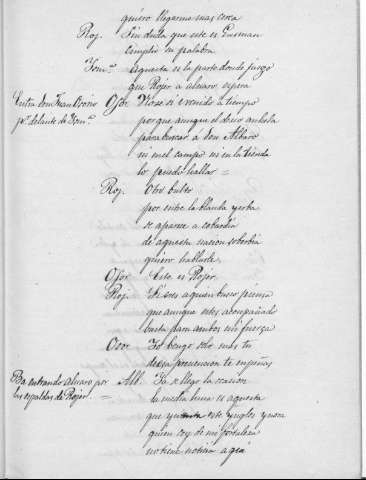 quiero llegarme mas cerca
Roj. Sin duda que este es Gusman
cumplio su palabra
Tom.ª Aquesta es la parte donde juzgo
que Rojer a alvaro espera
Entra don Juan Osorio
pr. delante de Tom.ª
Osor. No se si e venido a tiempo
por que aunque el deseo anhela
para buscar a don Albaro
ni en el campo ni en la tienda
lo puedo hallar =
Roj. Otro bulto
por entre la blanda yerba
se aparece a cobardia
de aquesta nacion soberbia
quiero hablarle
Osor. Este es Rojer
Roj. Si eres a quien busco piensa
que aunque estes acompañado
basta para ambos mi fuerza
Osor Yo bengo solo mas tu
de mi prevencion te empeñas
Ba entrando alvaro por
las espaldas de Rojer. =
Alb. Ya se llego la ocasion
la media luna es aquesta
que este yngles y nora
quien soy de mi fortaleza
no tiene noticia a qui